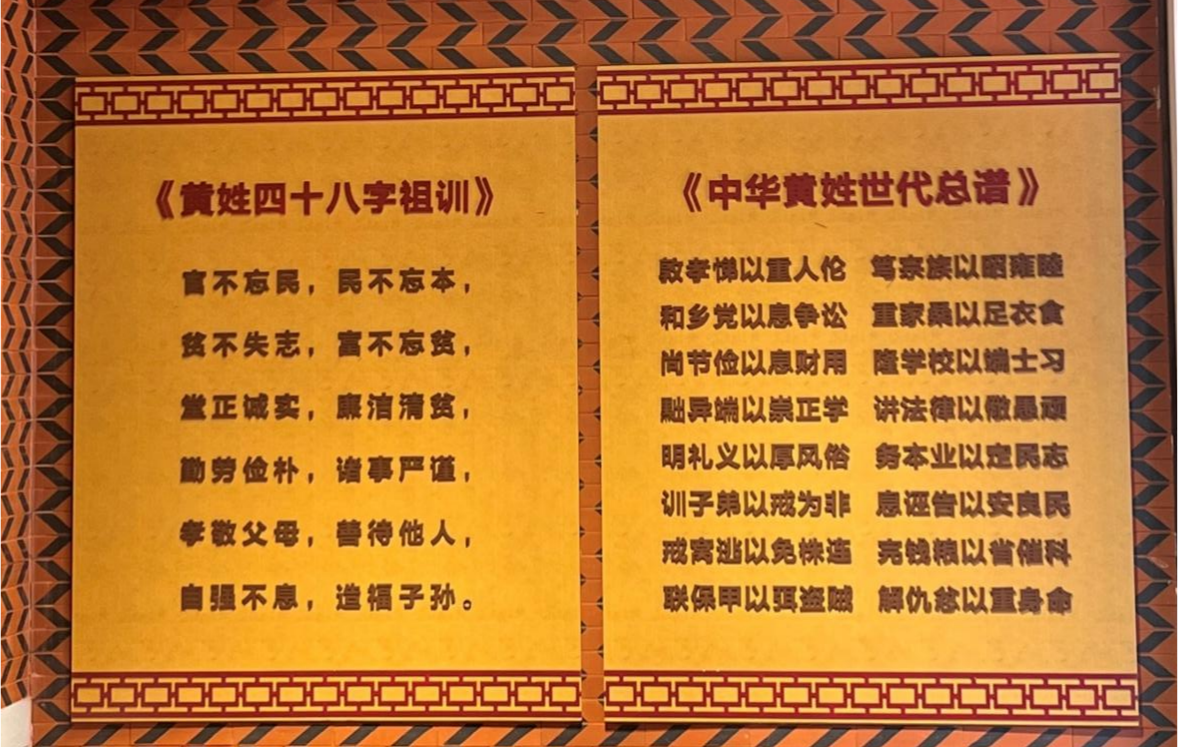 《黄姓四十八字祖训》
官不忘民，民不忘本，
贫不失志，富不忘贫，
堂正诚实，廉洁清贫，
勤劳俭朴，诸事严谨，
孝敬父母，善待他人，
自强不息，造福子孙。
《中华黄姓世代总谱》
敦孝悌以重人伦 笃宗族以昭雍睦
和乡党以息争讼 重家桑以足衣食
尚节俭以息财用 隆学校以端士习
黜异端以崇正学 讲法律以儆愚顽
明礼义以厚风俗 务本业以定民志
训子弟以戒为非 息诬告以安良民
戒窝逃以免株连 完钱粮以省催科
联保甲以弭盗贼 解仇忿以重身命